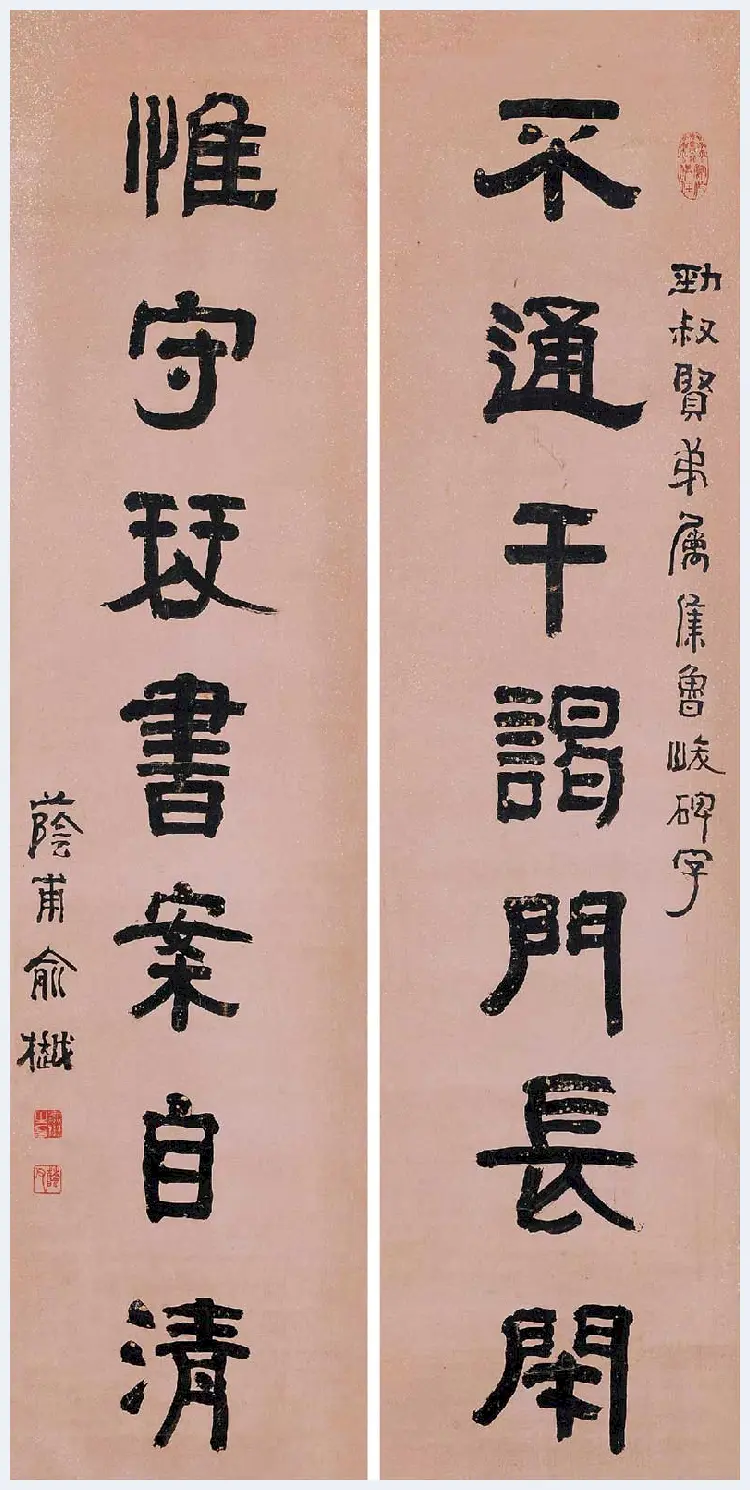 勁叔賢弟属集魯峻碑字
不通干謁門長閉
惟守琴書案自清
蔭甫俞樾